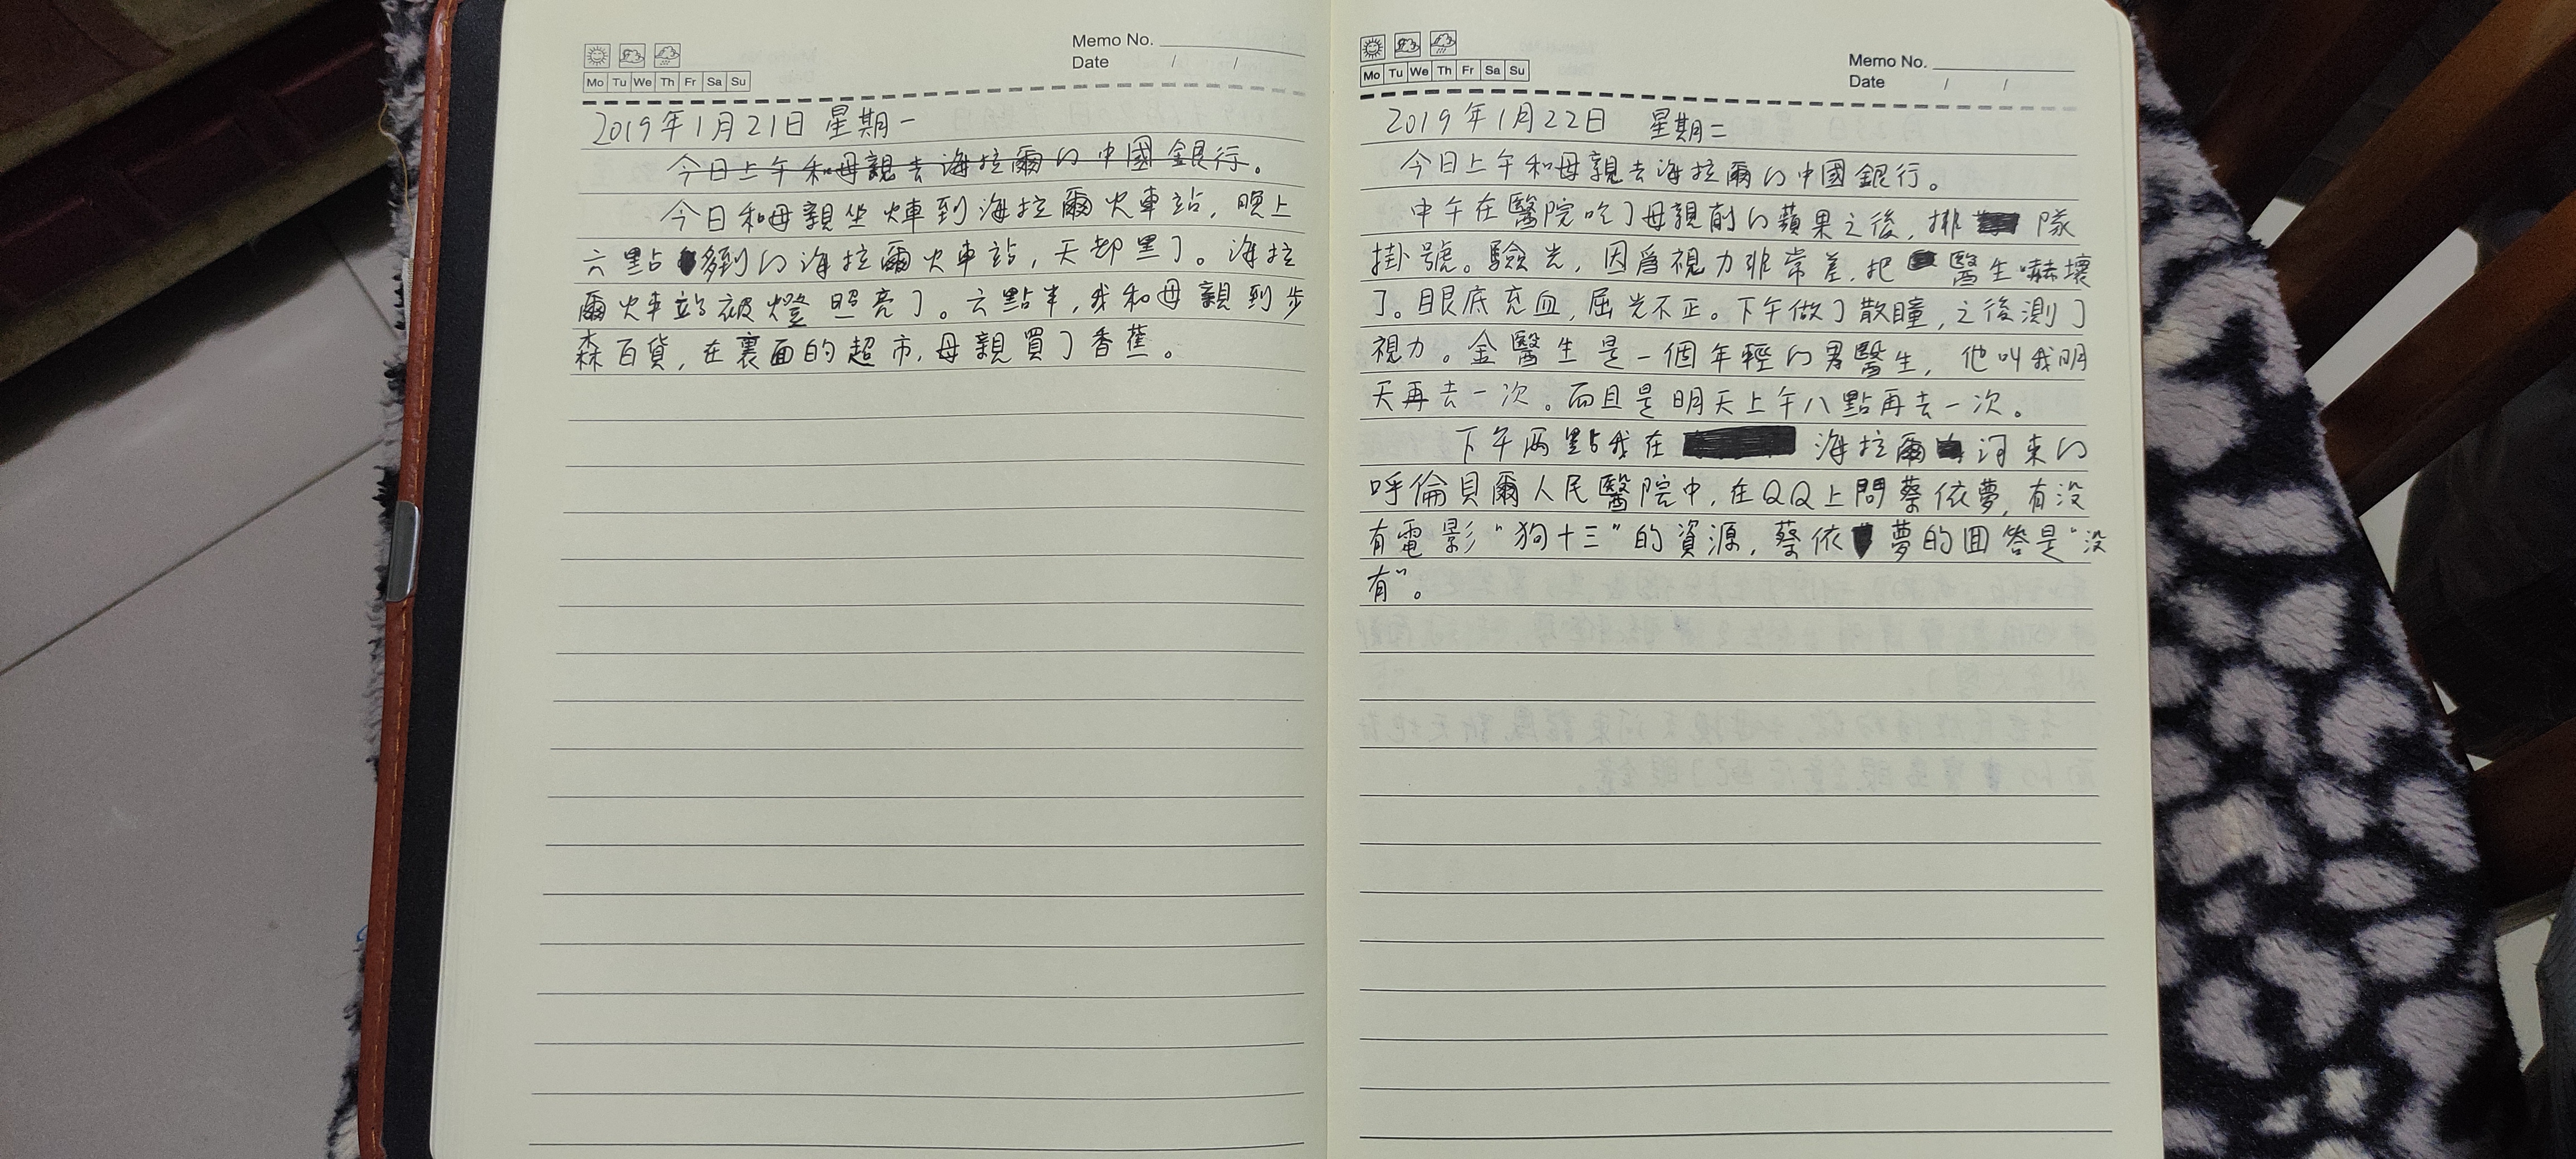 Memo No.
Date / /
Mo Tu We Th Fr Sa Su
2019年1月21日 星期一
今日上午和母親去海拉爾的中國銀行。
今日和母親坐火車到海拉爾火車站，晚上
六點多到的海拉爾火車站，天都黑了。海拉
爾火車站被燈照亮了。六點半，我和母親到步
森百貨，在裏面的超市，母親買了香蕉。
Memo No.
Date / /
Mo Tu We Th Fr Sa Su
2019年1月22日 星期二
今日上午和母親去海拉爾的中國銀行。
中午在醫院吃了母親削的蘋果之後，排隊
掛號。驗光，因爲視力非常差，把醫生嚇壞
了。眼底充血，屈光不正。下午做了散瞳，之後測了
視力。金醫生是一個年輕的男醫生，他叫我明
天再去一次。而且是明天上午八點再去一次。
下午两點我在海拉爾河東的
呼倫貝爾人民醫院中，在QQ上問蔡依夢，有没
有電影“狗十三”的資源，蔡依夢的回答是“没
有”。